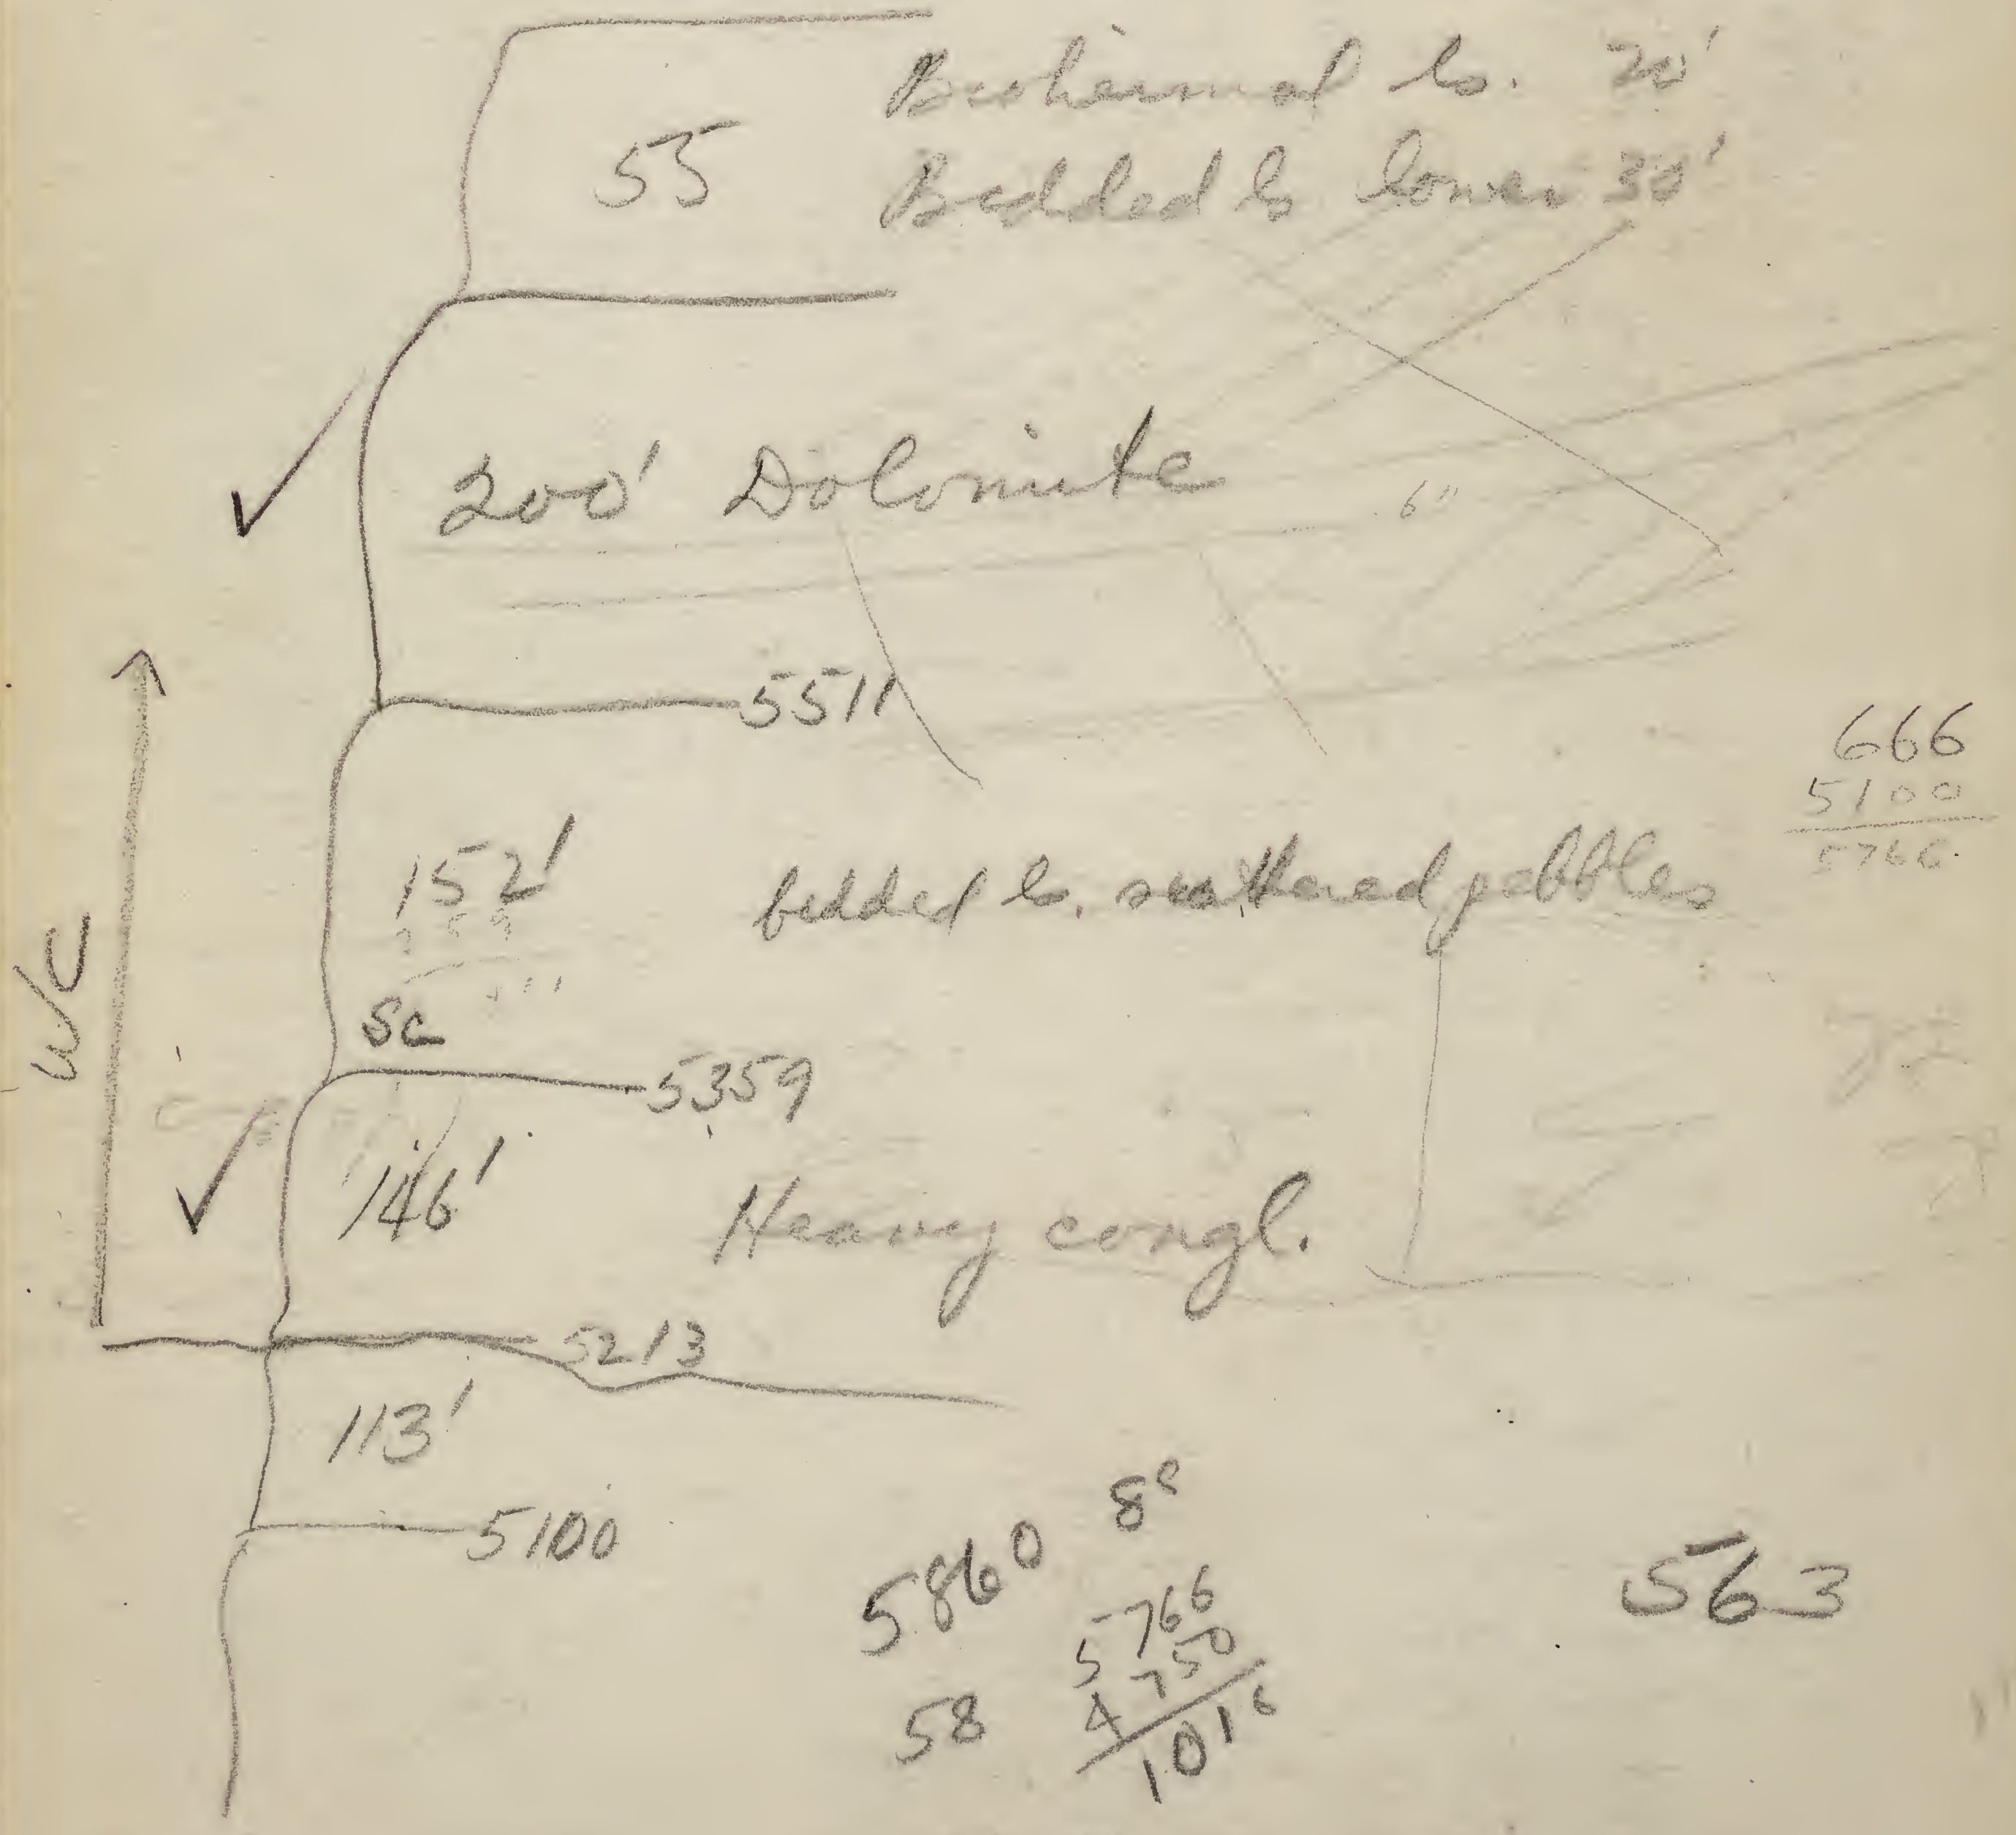 Biohermal ls. 20'
55
Bedded ls lower 30'
200' Dolomite
6"
5511
666
5100
5766
152'
259
411
bedded ls. scattered pebbles
WC
Sc
5359
146'
Heavy congl.
5213
113'
5100
5860
58
5766
4750
1016
563